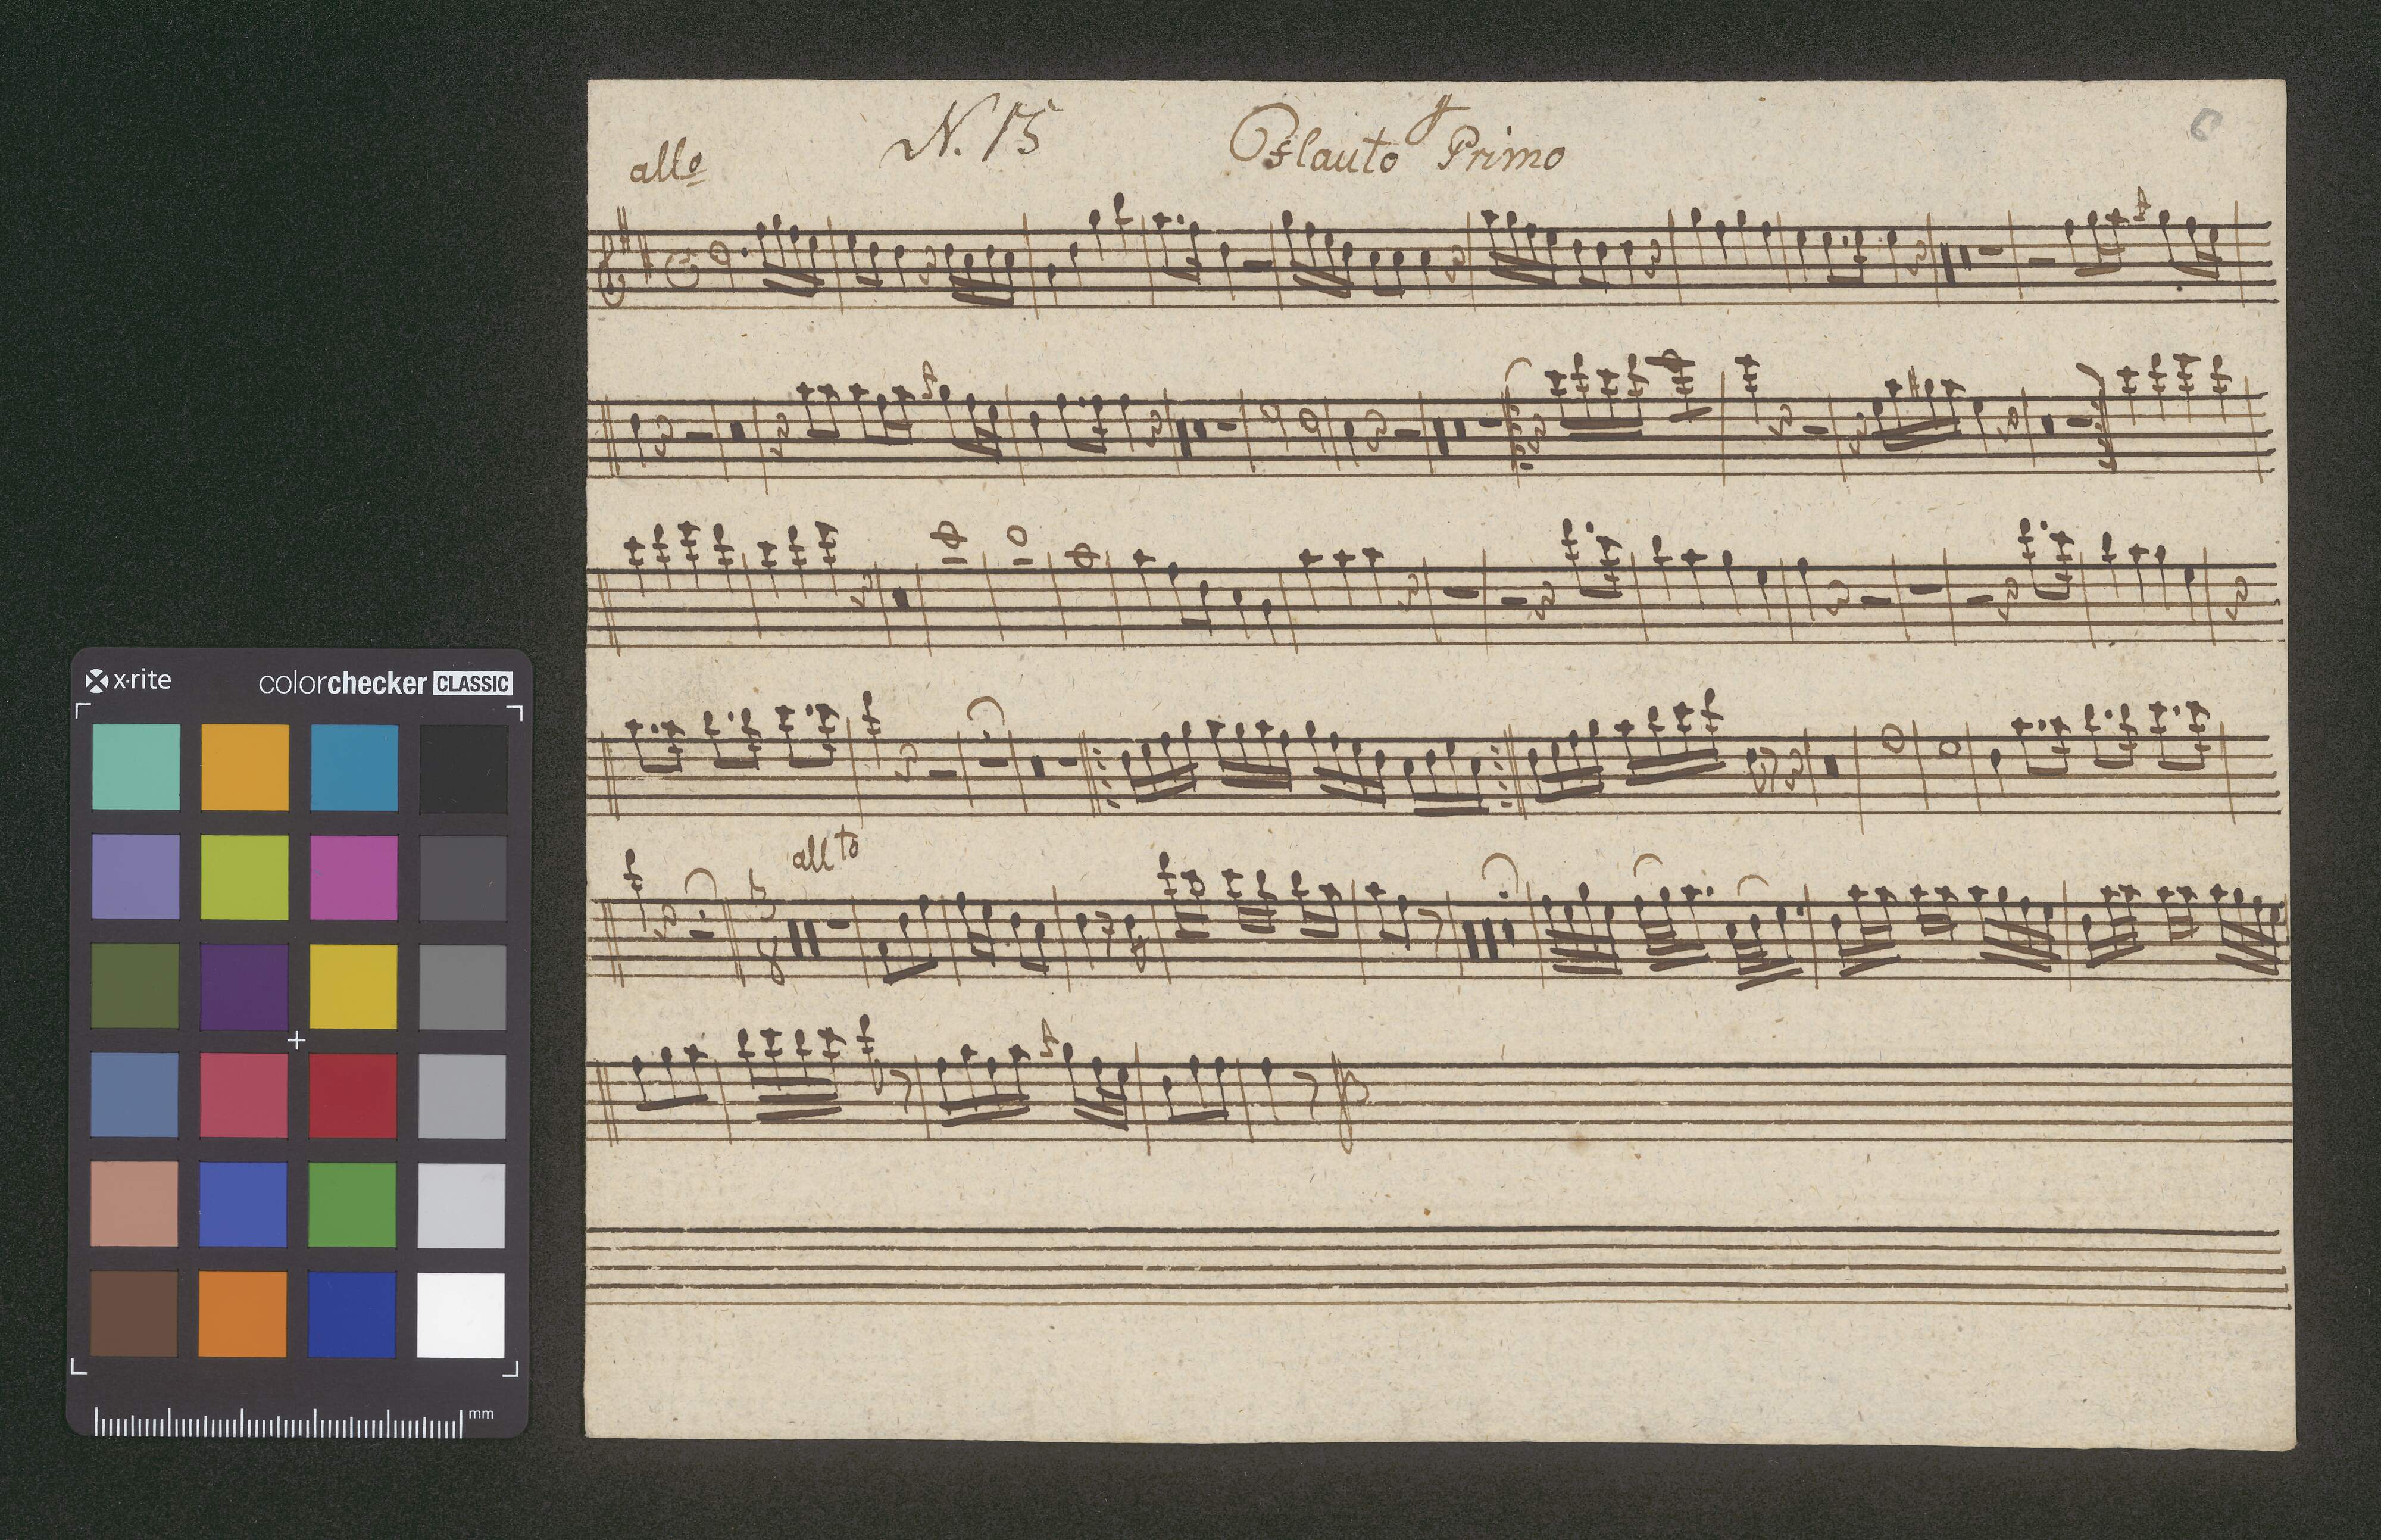 N. 15 Oflauto Primo 6
allo
x·rite colorchecker CLASSIC
allto
mm